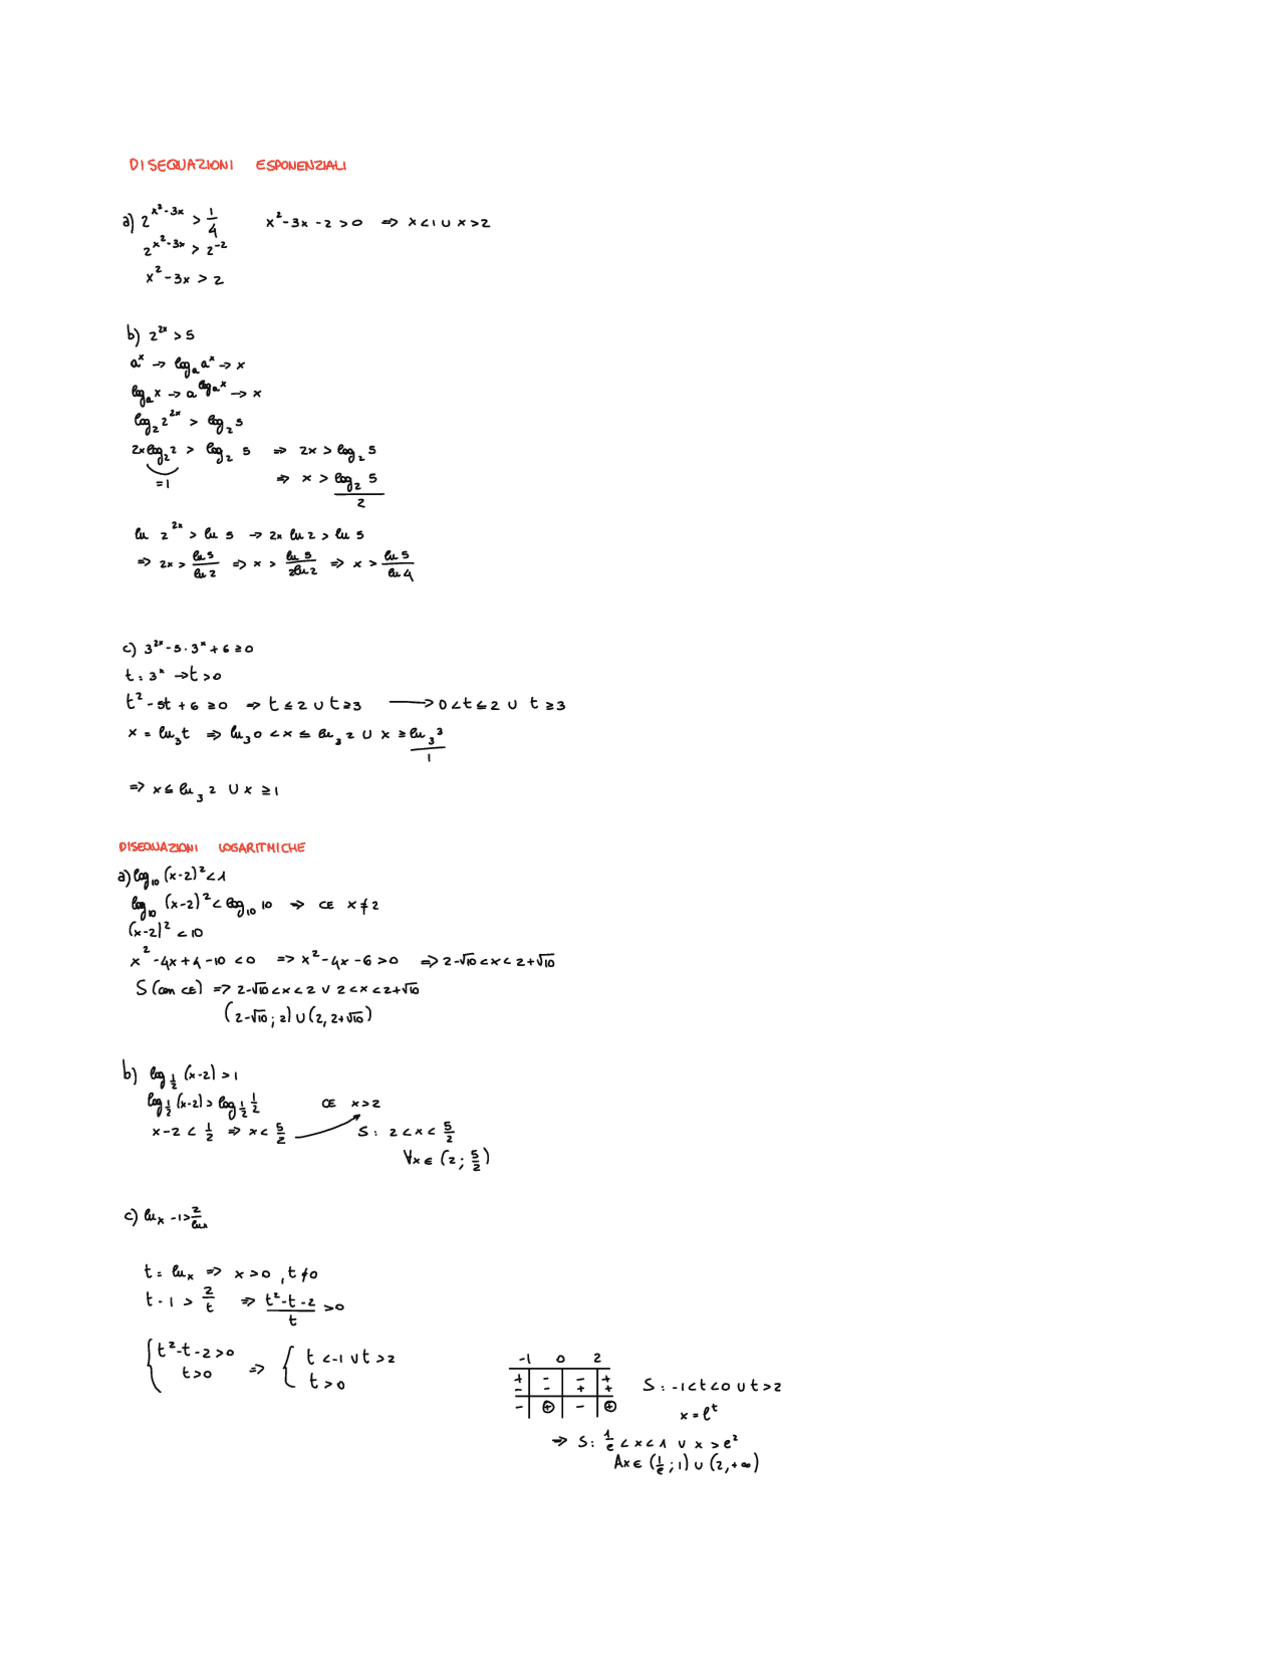 DISEQUAZIONI ESPONENZIALI
a) 2^(x²-3x) > 1/4    x²-3x-2>0 ⇒ x<1 ∪ x>2
2^(x²-3x) > 2^(-2)
x²-3x > 2
b) 2^(2x) > 5
a^x → log_a a^x → x
log_a x → a^(log_a x) → x
log_2 2^(2x) > log_2 5
2x log_2 2 > log_2 5 ⇒ 2x > log_2 5
=1    ⇒ x > log_2 5 / 2
ln 2^(2x) > ln 5 → 2x ln 2 > ln 5
⇒ 2x > ln 5 / ln 2 ⇒ x > ln 5 / 2 ln 2 ⇒ x > ln 5 / ln 4
c) 3^(2x) - 5·3^x + 6 ≥ 0
t = 3^x → t > 0
t² - 5t + 6 ≥ 0 ⇒ t ≤ 2 ∪ t ≥ 3 → 0 < t ≤ 2 ∪ t ≥ 3
x = ln_3 t ⇒ ln_3 0 < x ≤ ln_3 2 ∪ x ≥ ln_3 3
1
⇒ x ≤ ln_3 2 ∪ x ≥ 1
DISEQUAZIONI LOGARITMICHE
a) log_10 (x-2)² < 1
log_10 (x-2)² < log_10 10 ⇒ CE x ≠ 2
(x-2)² < 10
x² - 4x + 4 - 10 < 0 ⇒ x² - 4x - 6 > 0 ⇒ 2-√10 < x < 2+√10
S (con CE) ⇒ 2-√10 < x < 2 ∪ 2 < x < 2+√10
(2-√10; 2) ∪ (2, 2+√10)
b) log_(1/2) (x-2) > 1
log_(1/2) (x-2) > log_(1/2) 1/2    CE x>2
x-2 < 1/2 ⇒ x < 5/2    S: 2 < x < 5/2
∀x ∈ (2; 5/2)
c) ln x - 1 > 2/ln x
t = ln x ⇒ x > 0, t ≠ 0
t - 1 > 2/t ⇒ (t²-t-2)/t > 0
{ t²-t-2 > 0 ⇒ { t < -1 ∪ t > 2
t > 0    t > 0
-1 0 2
+ - - +
- - + +
- + - +
S: -1 < t < 0 ∪ t > 2
x = e^t
⇒ S: 1/e < x < 1 ∪ x > e²
Ax ∈ (1/e; 1) ∪ (2, +∞)